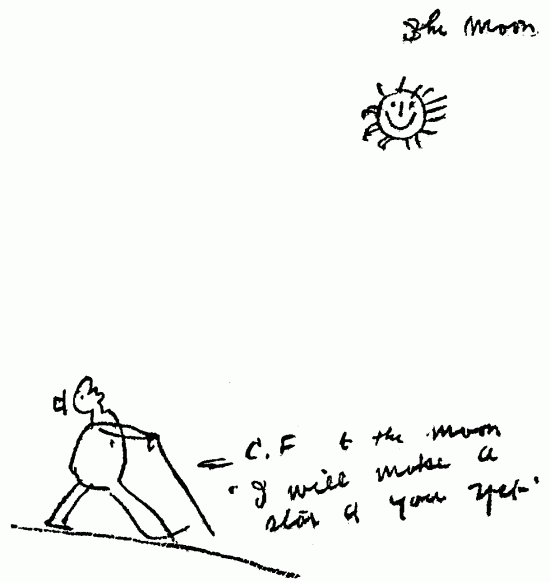 The Moon
C.F to the moon
"I will make a
star of you yet"